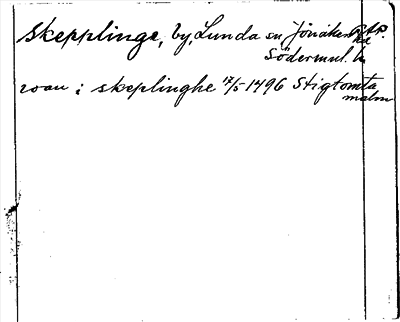 Skepplinge, by, Lunda sn Jönåkers
Södermanl. l.
roau i skeplinghe 17/5 1496 Stigtomta
malm